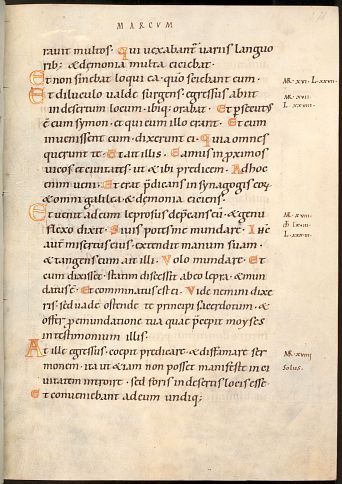 MARCVM
rauit multos· Qui uexabant̄ uariis languo
rib; & demonia multa eiciebat·
Et non sinebat loqui ea· quō sciebant eum·
Et diluculo ualde surgens· egressus abiit
in desertum locum· ibiq; orabat· Et p̄secut'
ē eum symon· et qui cum illo erant· Et cum
inuenissent eum· dixerunt ei· Quia omnes
querunt te· Et ait illis· Eamus in p̄ximos
uicos et ciuitates· ut & ibi predicem· Ad hoc
enim ueni· Et erat p̄dicans in synagogis eoꝝ
& omni galilea· & demonia eiciens·
Et uenit ad eum leprosus dep̄cans eū· & genu
flexo dixit· Si uis potes me mundare· Ihc
aut̄ misertus eius· extendit manum suam·
& tangens eum ait illi· Volo mundare· Et
cum dixisset· statim discessit ab eo lepra· & mun
datus ē· Et comminatus est ei· Vide nemini dixe
ris· sed uade ostende te principi sacerdotum· &
offer p̄ emundatione tua quae p̄cepit moyses
in testimonium illis·
At ille egressus· coepit predicare· & diffamare ser
monem· ita ut etiam non posset manifeste in ci
uitatem introire· sed foris in desertis locis esse·
et conueniebant ad eum undiq;